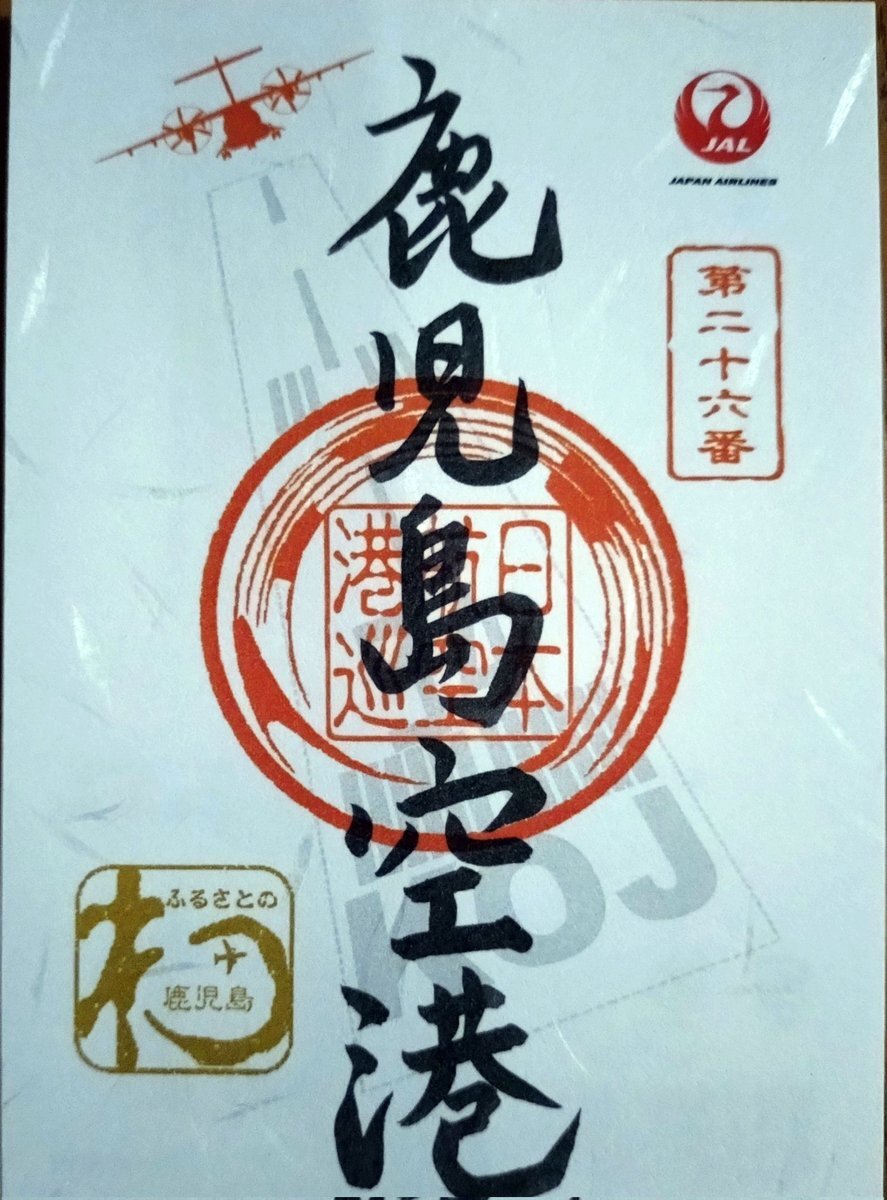 鹿児島空港
JAL
JAPAN AIRLINES
第二十六番
日本
航空
港巡
KOJ
ふるさとの
鹿児島